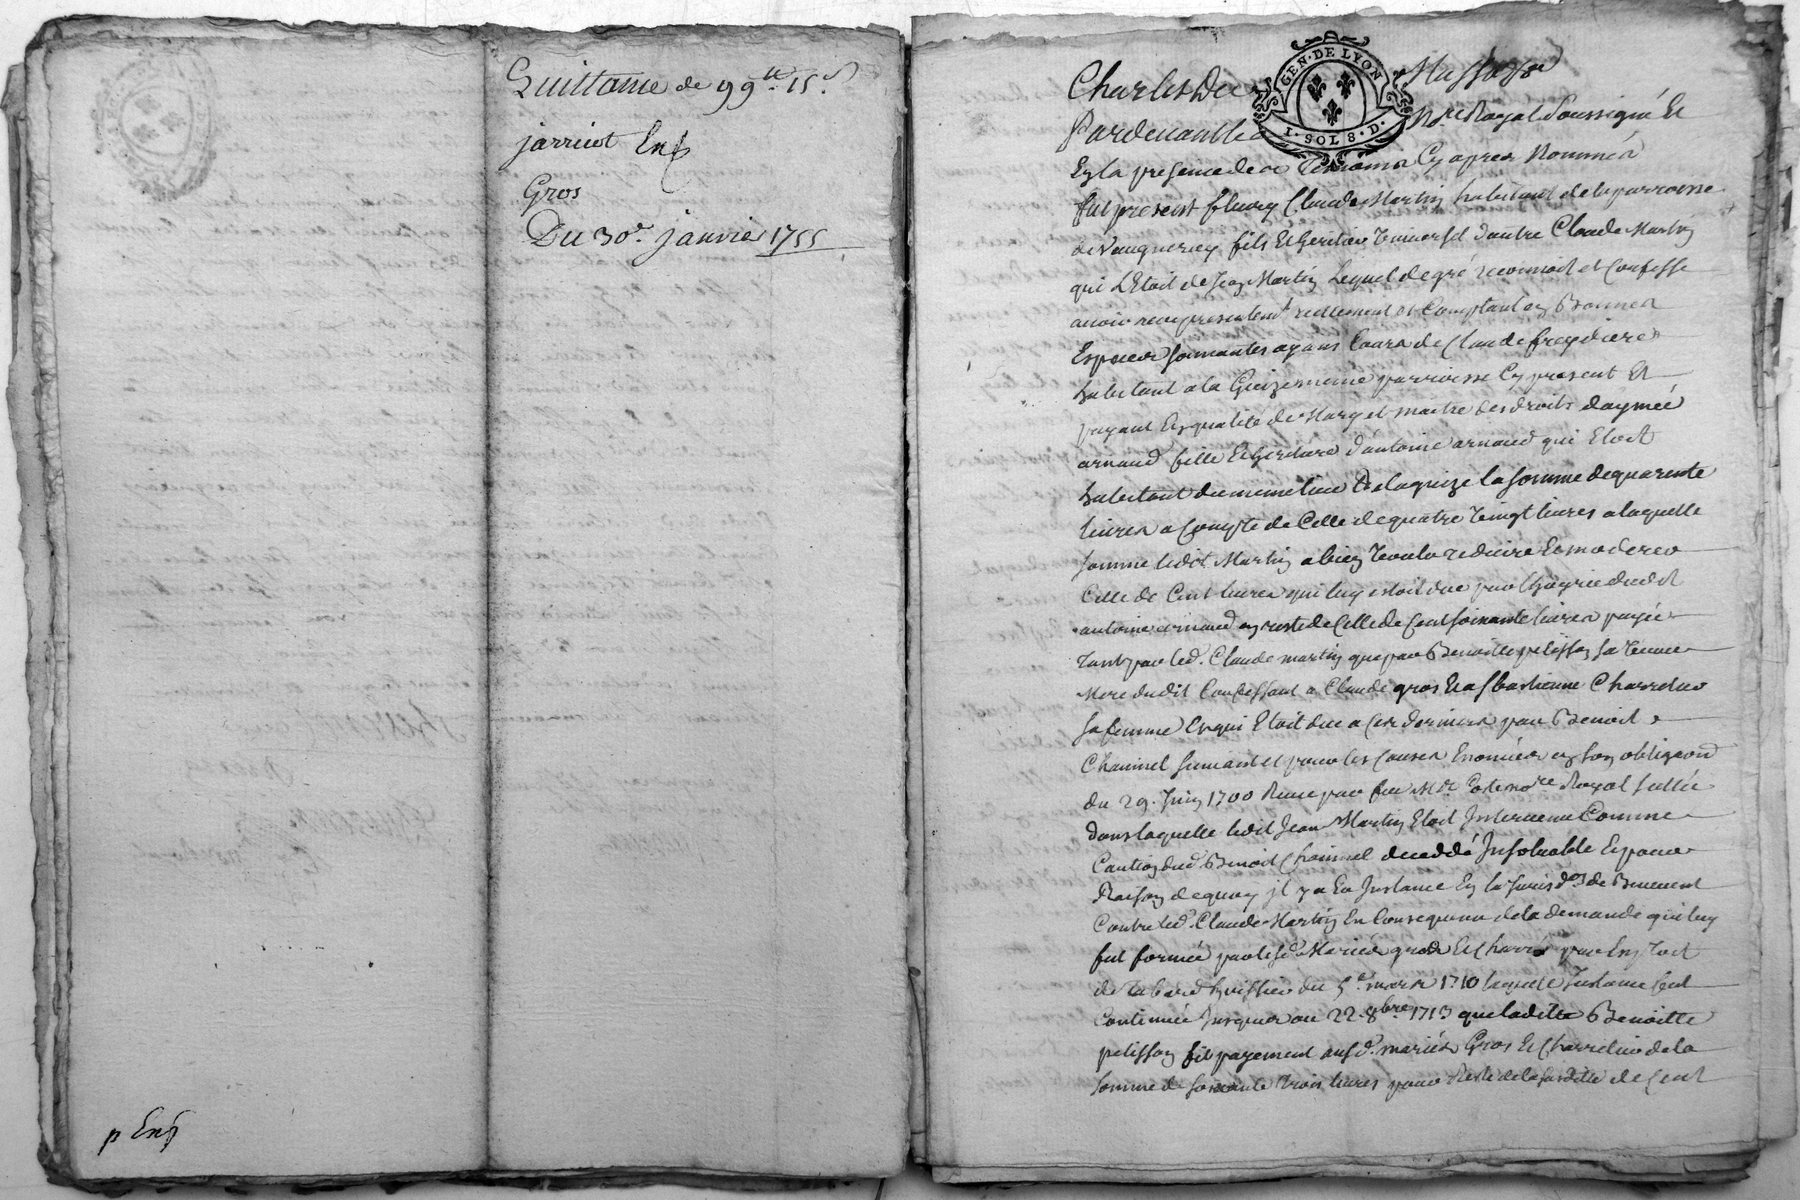 Quittance de 99ᵗᵗ 15ˢ
jarricot Exp
Gros
Du 30ᵉ. janvier 1755
p Exp
GEN·DE LYON
1·SOLS·D·
Charles De
Pardevant le Nre Royal Soussigné Et
En la presence des Temoins Cy apres Nommés
fut present fleury Claude Martin habitant de la parroisse
de Vaugneray fils Et heritier Universel d'autre Claude Martin
qui L'Etoit de Jean Martin Lequel de gré reconnoit et Confesse
avoir reçu presentemt reellement et Comptant en Bonnes
Especes sonnantes ayans Cours de Claude freydiere
habitant a la Guize meme parroisse Cy present Et
payant En qualité de Mary et maitre des droits daymée
arnaud fille Et heritiere d'antoine arnaud qui Etoit
habitant du meme lieu de la guize la somme de quarente
livres a Compte de Celle de quatre Vingt livres a laquelle
somme ledit Martin a bien Voulu reduire Et moderer
Celle de Cent livres qui luy etoit due par l'hoyrie dudit
antoine arnaud en reste de Celle de Cent soixante livres payée
Tant par led. Claude martin que par Benoitte pelisson sa Veuve
Mere dudit Confessant a Claude gros Et a sbastienne Charretier
sa femme Et qui Etoit due a Ces derniers par Benoit
Chainel suivant et pour les Causes Enoncées en son obligaon
du 29. Juin 1700 Recue par feu Me Nore Royal
dans laquelle ledit Jean Martin Etoit Intervenu Comme
Caution dud. Benoit Chainel decedé Insolvable Et pour
Raison de quoy il y a Eu Instance En la Jurisdon de
Contre led. Claude Martin En Consequence de la demande qui luy
fut formée par lesd. Mariés gros Et Charretier par Exploit
de Huissier du 5e mars 1710 laquelle Instance fut
Continuée Jusques au 22. 8bre 1713 que ladite Benoitte
pelisson fit payement ausd. mariés Gros Et Charretier de la
somme de soixante trois livres pour Reste de la susditte de Cent